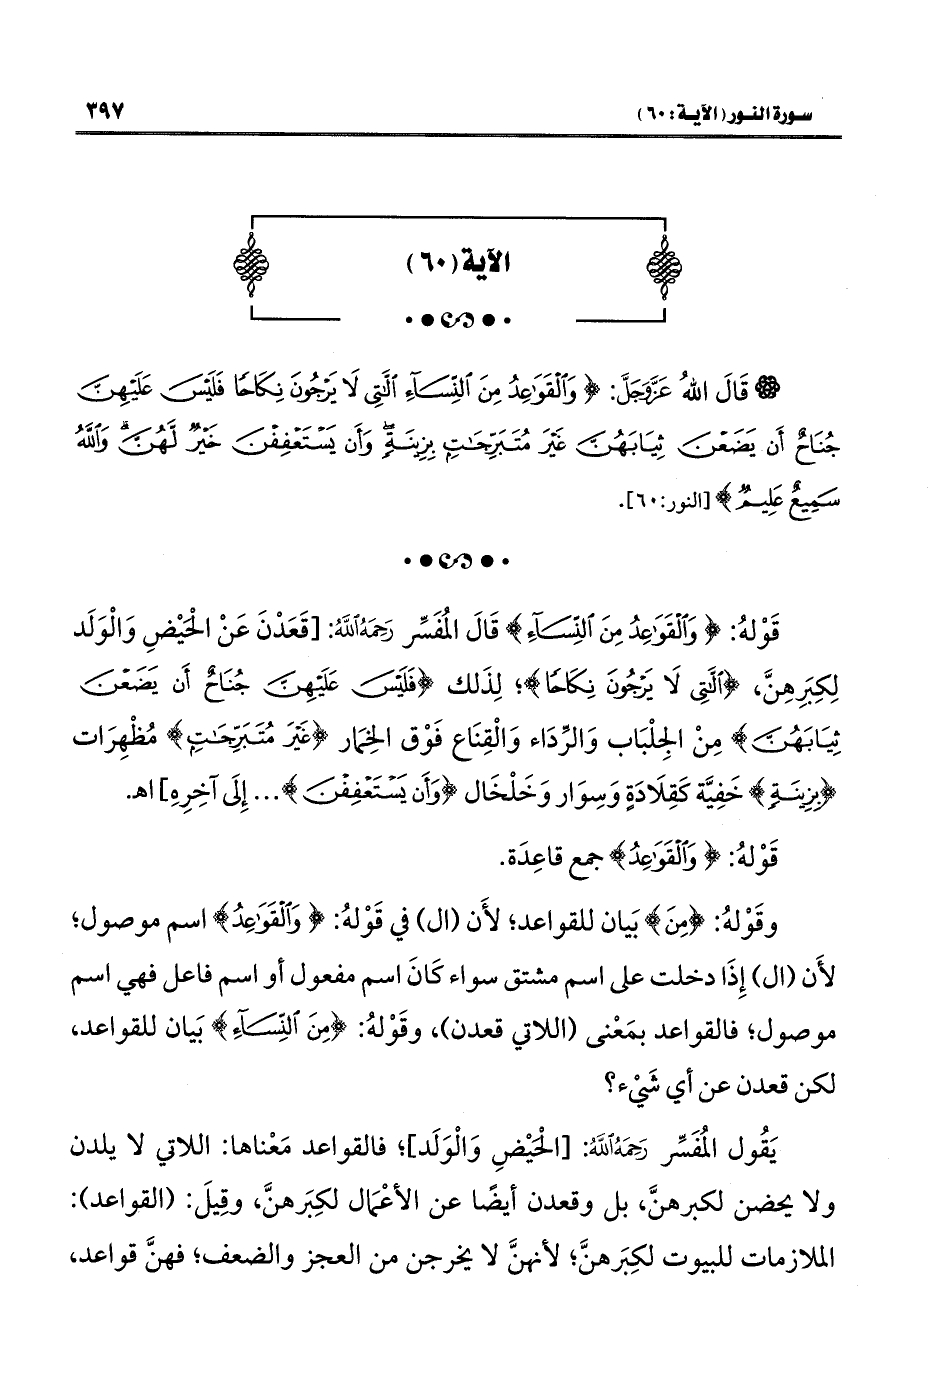 سورة النور (الآية: ٦٠)
٣٩٧
الآية (٦٠)
قَالَ اللهُ عَزَّوَجَلَّ: ﴿ وَٱلْقَوَٰعِدُ مِنَ ٱلنِّسَآءِ ٱلَّٰتِى لَا يَرْجُونَ نِكَاحًا فَلَيْسَ عَلَيْهِنَّ
جُنَاحٌ أَن يَضَعْنَ ثِيَابَهُنَّ غَيْرَ مُتَبَرِّجَٰتٍۭ بِزِينَةٍ ۖ وَأَن يَسْتَعْفِفْنَ خَيْرٌ لَّهُنَّ ۗ وَٱللَّهُ
سَمِيعٌ عَلِيمٌ ﴾ [النور:٦٠].
قَوْلهُ: ﴿ وَٱلْقَوَٰعِدُ مِنَ ٱلنِّسَآءِ ﴾ قَالَ المُفَسِّر رَحِمَهُ ٱللَّهُ: [قَعَدْنَ عَنْ الْحَيْضِ وَالْوَلَد
لِكِبَرِهِنَّ، ﴿ٱلَّٰتِى لَا يَرْجُونَ نِكَاحًا﴾؛ لِذَلك ﴿فَلَيْسَ عَلَيْهِنَّ جُنَاحٌ أَن يَضَعْنَ
ثِيَابَهُنَّ﴾ مِنْ الجِلْبَاب وَالرِّدَاء وَالْقِنَاع فَوْق الخِمَار ﴿غَيْرَ مُتَبَرِّجَٰتٍۭ﴾ مُظْهِرَات
﴿بِزِينَةٍ﴾ خَفِيَّة كَقِلَادَةٍ وَسِوَار وَخَلْخَال ﴿وَأَن يَسْتَعْفِفْنَ﴾... إِلَى آخِرِهِ] اهـ.
قَوْلهُ: ﴿ وَٱلْقَوَٰعِدُ﴾ جمع قاعِدَة.
وقَوْلهُ: ﴿مِنَ﴾ بَيان للقواعد؛ لأَن (ال) في قَوْلهُ: ﴿ وَٱلْقَوَٰعِدُ﴾ اسم موصول؛
لأَن (ال) إِذَا دخلت على اسم مشتق سواء كَانَ اسم مفعول أو اسم فاعل فهي اسم
موصول؛ فالقواعد بمَعْنى (اللاتي قعدن)، وقَوْلهُ: ﴿مِنَ ٱلنِّسَآءِ﴾ بَيان للقواعد،
لكن قعدن عن أي شَيْء؟
يَقُول المُفَسِّر رَحِمَهُ ٱللَّهُ: [الْحَيْضِ وَالْوَلَد]؛ فالقواعد مَعْناها: اللاتي لا يلدن
ولا يحضن لكبرهنَّ، بل وقعدن أيضًا عن الأَعْمال لكِبَرهنَّ، وقِيلَ: (القواعد):
الملازمات للبيوت لكِبَرهنَّ؛ لأنهنَّ لا يخرجن من العجز والضعف؛ فهنَّ قواعد،